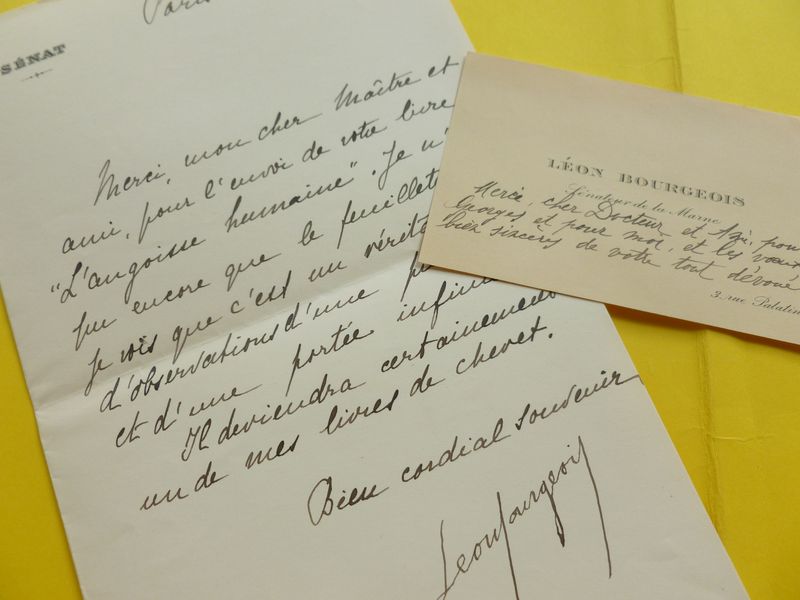 Paris
SÉNAT
Merci, mon cher Maître et
ami, pour l'envoi de votre livre
"L'angoisse humaine". Je n'
pu encore que le feuillete
je vois que c'est un vérita
d'observations d'une p
et d'une portée infini
Il deviendra certainement
un de mes livres de chevet.
Bien cordial souvenir
Léon Bourgeois
LÉON BOURGEOIS
Sénateur de la Marne
Merci, cher Docteur et Ami, pour
Georges et pour moi, et les vœux
bien sincères de votre tout dévoué
3, rue Palatin